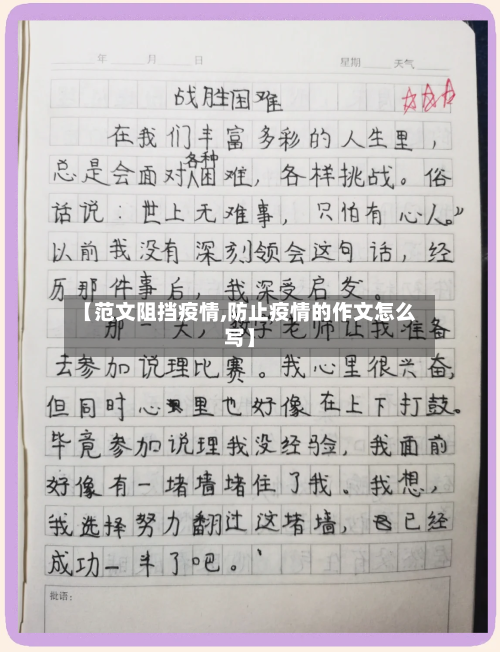 年 月 日 星期 天气
战胜困难
在我们丰富多彩的人生里，
总是会面对各种困难，各样挑战。俗
话说：世上无难事，只怕有心人。”
以前我没有深刻领会这句话，经
历那件事后，我深受启发
【范文阻挡疫情,防止疫情的作文怎么
写】
那一天，数学老师让我准备
去参加说理比赛。我心里很兴奋，
但同时心里也好像在上下打鼓。
毕竟参加说理我没经验，我面前
好像有一堵墙堵住了我。我想，
我选择努力翻过这堵墙，已经
成功一半了吧。
批语：